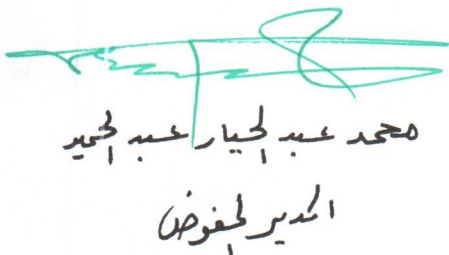 محمد عبد الجبار عبد الحميد
المدير المفوض